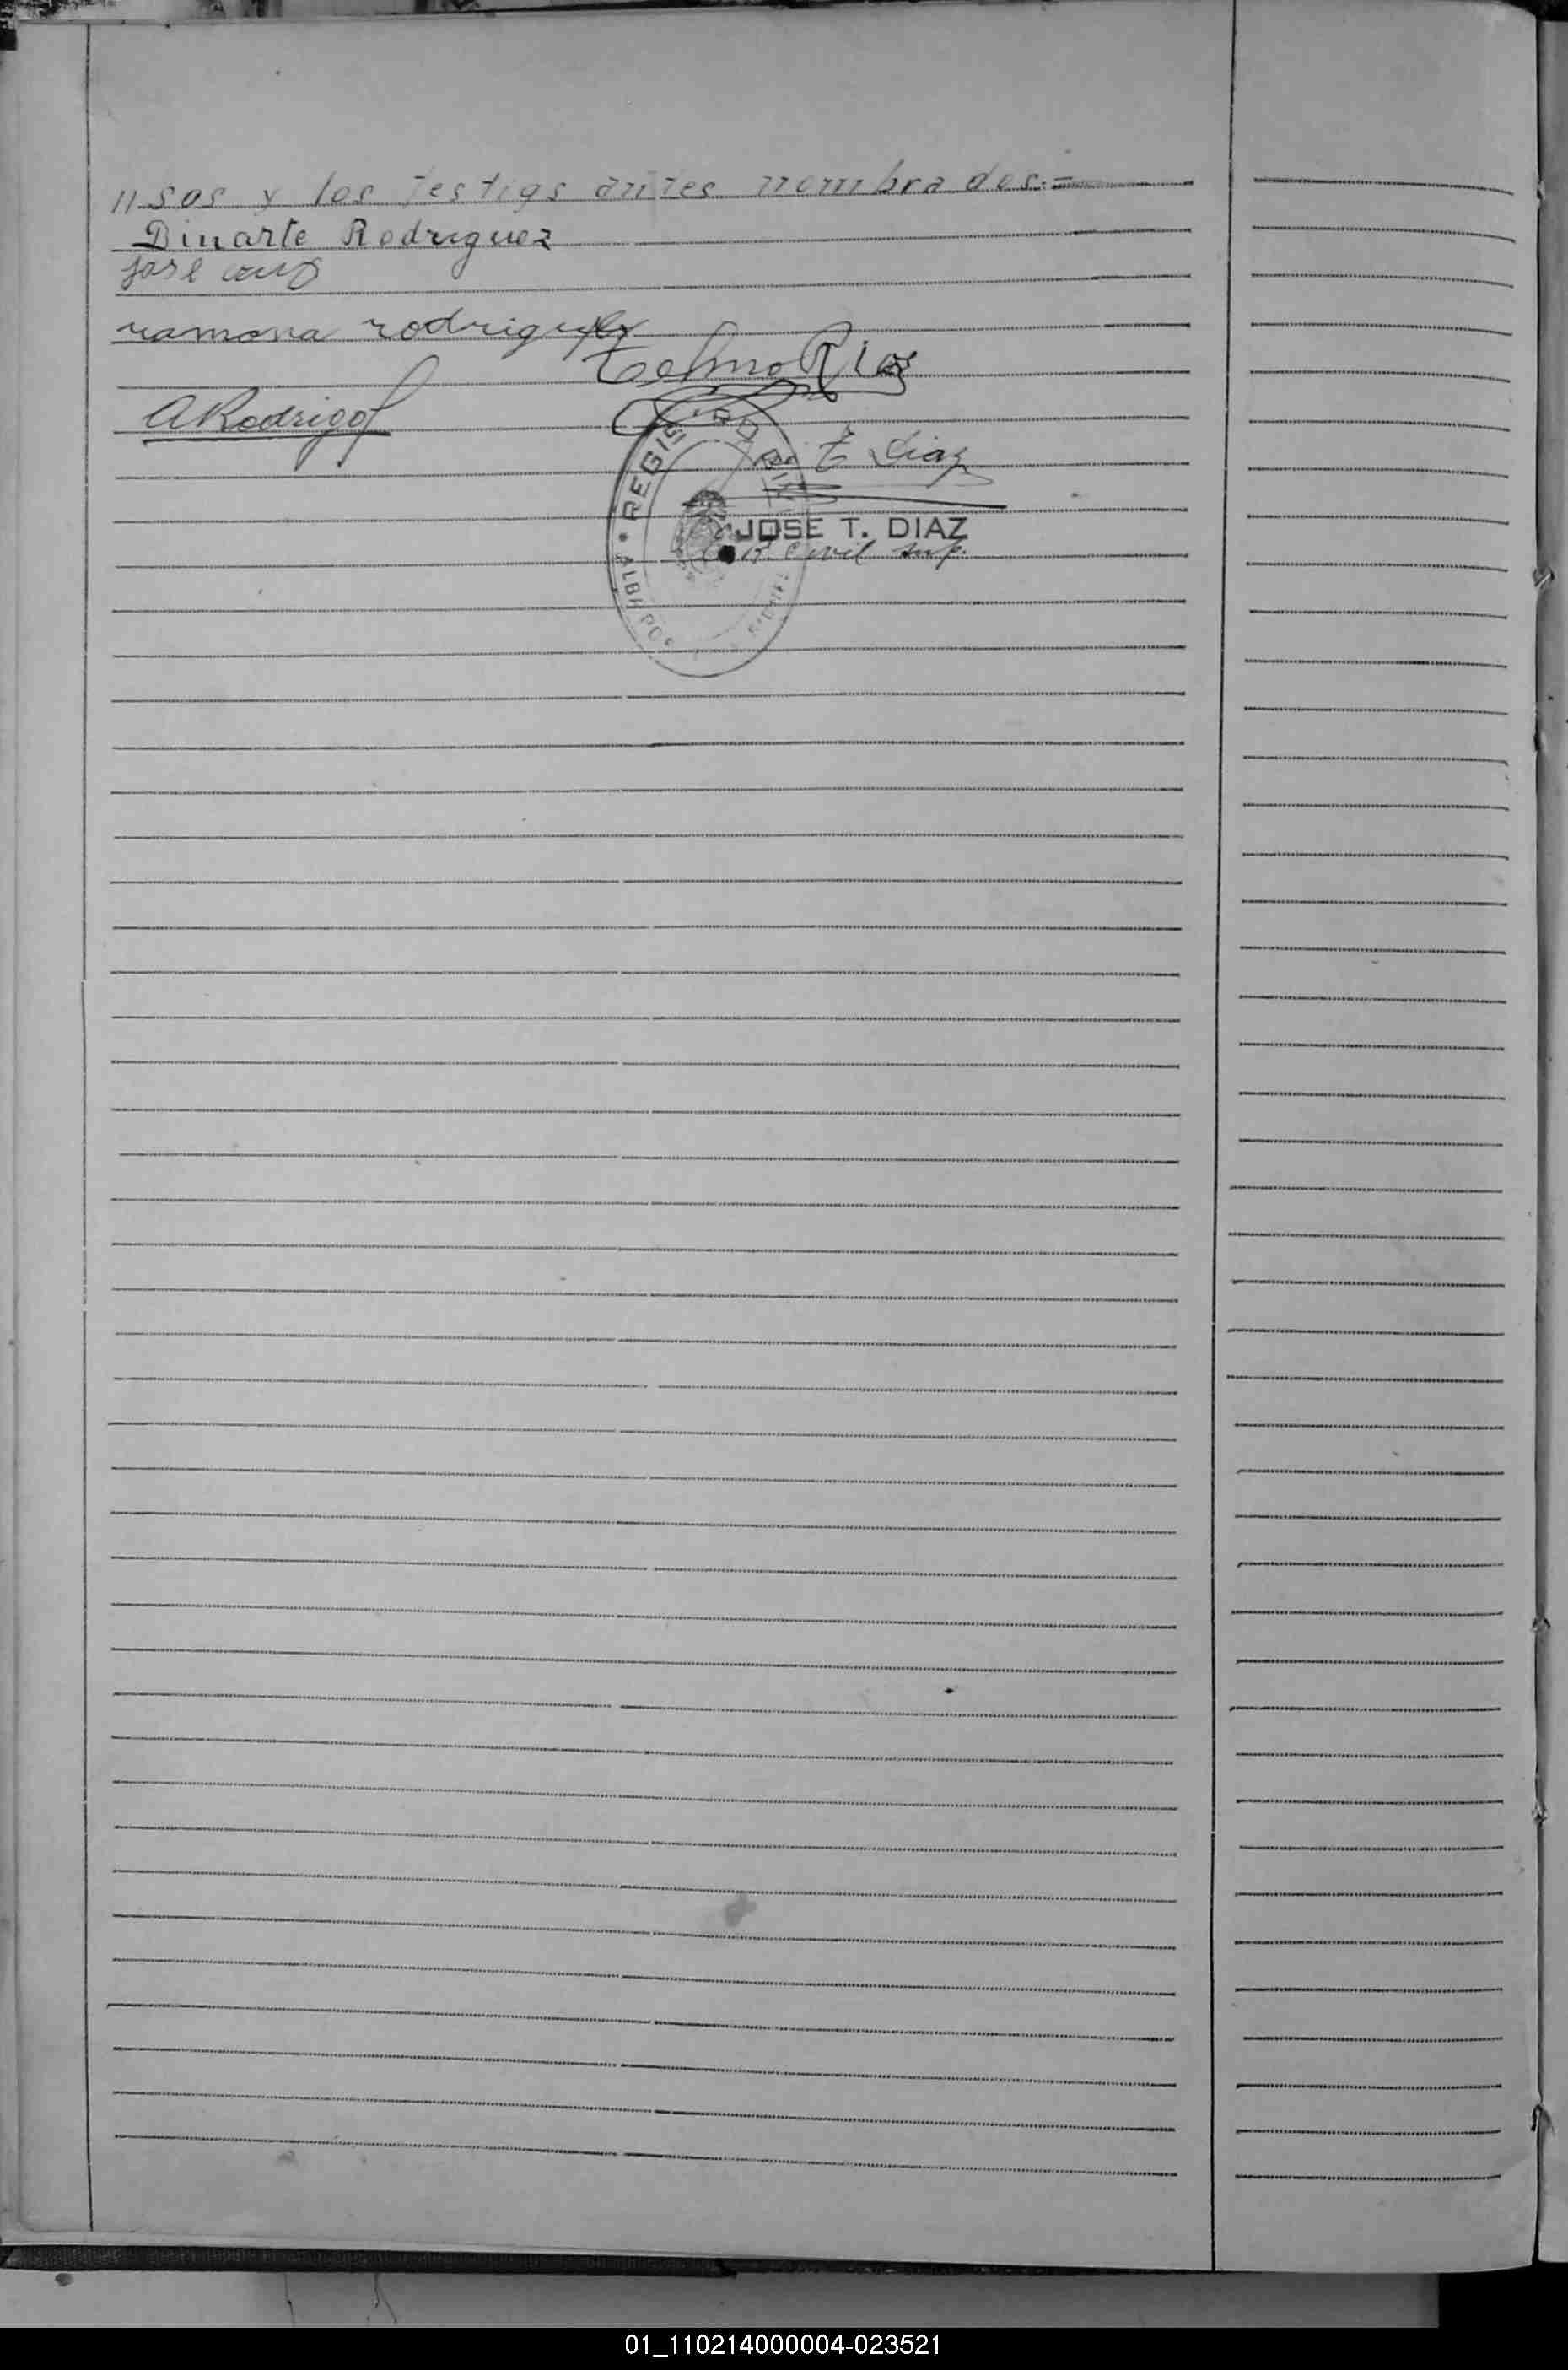 //sos y los testigs antes nombrados.=
Dinarte Rodriguez
jose
ramona rodriguez
Telmo Rios
ARodrigo
REGISTRO CIVIL
T Diaz
JOSE T. DIAZ
R. Civil sup.
ALBA POS
01_110214000004-023521